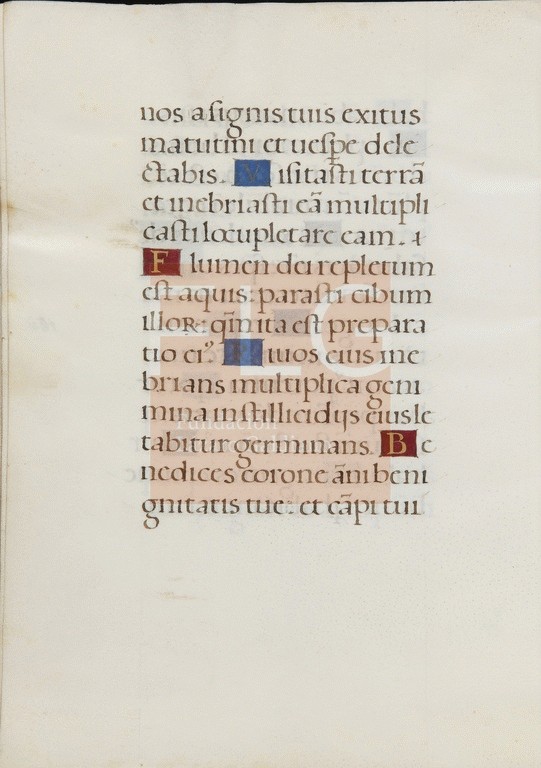 nos a signis tuis exitus
matutini et uesp̱e dele
ctabis. Visitasti terrã
et inebriasti eã multipli
casti locupletare eam.
Flumen dei repletum
est aquis: parasti cibum
illoR: qm̃ ita est prepara
tio ei⁹. Riuos eius ine
brians multiplica geni
mina in stillicidijs eius le
tabitur germinans. Be
nedices corone ãni beni
gnitatis tue: et cãpi tui
FLG
Fundación